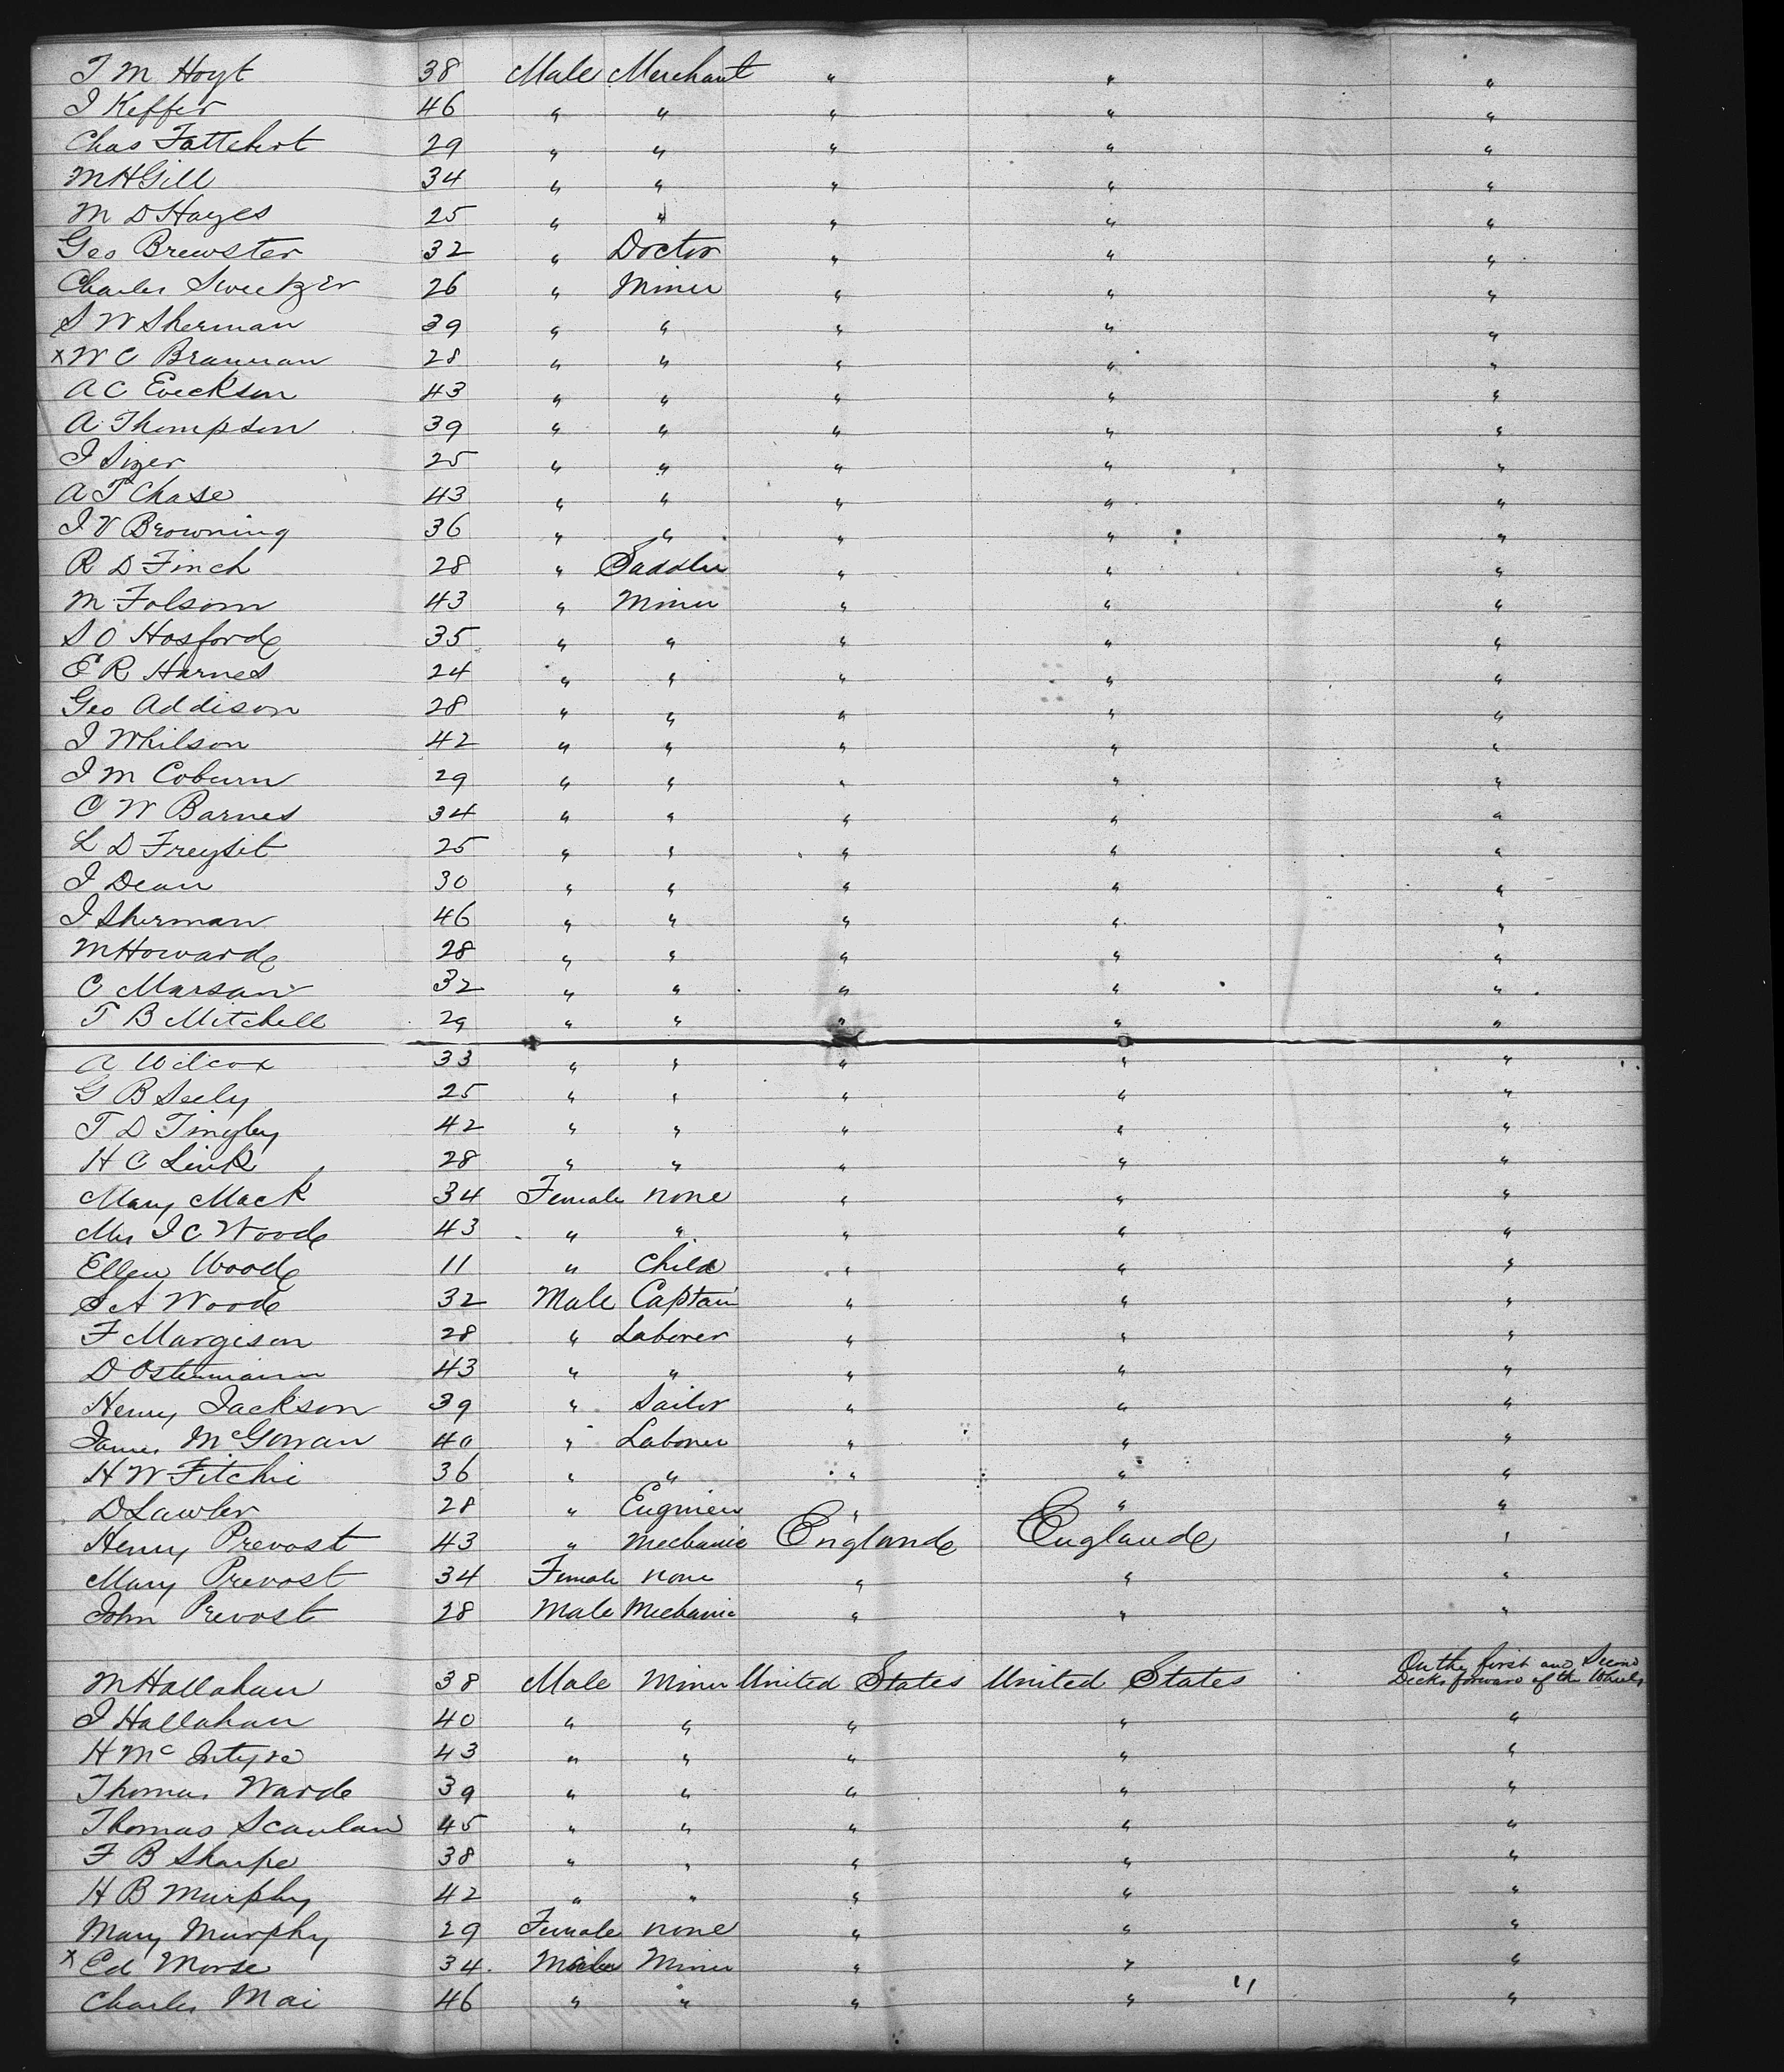 T M Hoyt 38 Male Merchant " " "
I Keffer 46 " " " " "
Chas Fattehert 29 " " " " "
M H Gill 34 " " " " "
M D Hayes 25 " " " " "
Geo Brewster 32 " Doctor " " "
Charles Sweetzer 26 " Miner " " "
S W Sherman 39 " " " " "
x W C Brannan 28 " " " " "
A C Eveckson 43 " " " " "
A Thompson 39 " " " " "
I Sizer 25 " " " " "
A T Chase 43 " " " " "
I V Browning 36 " " " " "
R D Finch 28 " Saddler " " "
M Folsom 43 " Miner " " "
S O Hosford 35 " " " " "
E R Harnes 24 " " " " "
Geo Addison 28 " " " " "
I Whilson 42 " " " " "
I M Coburn 29 " " " " "
C W Barnes 34 " " " " "
L D Freysit 25 " " " " "
I Dean 30 " " " " "
I Sherman 46 " " " " "
M Howard 28 " " " " "
C Marsan 32 " " " " "
T B Mitchell 29 " " " " "
A Wilcox 33 " " " " "
G B Seely 25 " " " " "
T D Tingley 42 " " " " "
H C Link 28 " " " " "
Mary Mack 34 Female none " " "
Mrs I C Wood 43 " " " " "
Ellen Wood 11 " Child " " "
S A Wood 32 Male Captain " " "
F Margison 28 " Laborer " " "
D Ostermann 43 " " " " "
Henry Jackson 39 " Sailor " " "
James McGowan 40 " Laborer " " "
H W Fitchie 36 " " " " "
D Lawler 28 " Engineer " " "
Henry Prevost 43 " Mechanic England England "
Mary Prevost 34 Female none " " "
John Prevost 28 Male Mechanic " " "
M Hallahan 38 Male Miner United States United States On the first and Second Decks forward of the Wheels
I Hallahan 40 " " " " "
H McIntyre 43 " " " " "
Thomas Ward 39 " " " " "
Thomas Scanlan 45 " " " " "
F B Sharpe 38 " " " " "
H B Murphy 42 " " " " "
Mary Murphy 29 Female none " " "
x Ed Morse 34. Male Miner " " "
Charles Mai 46 " " " " "